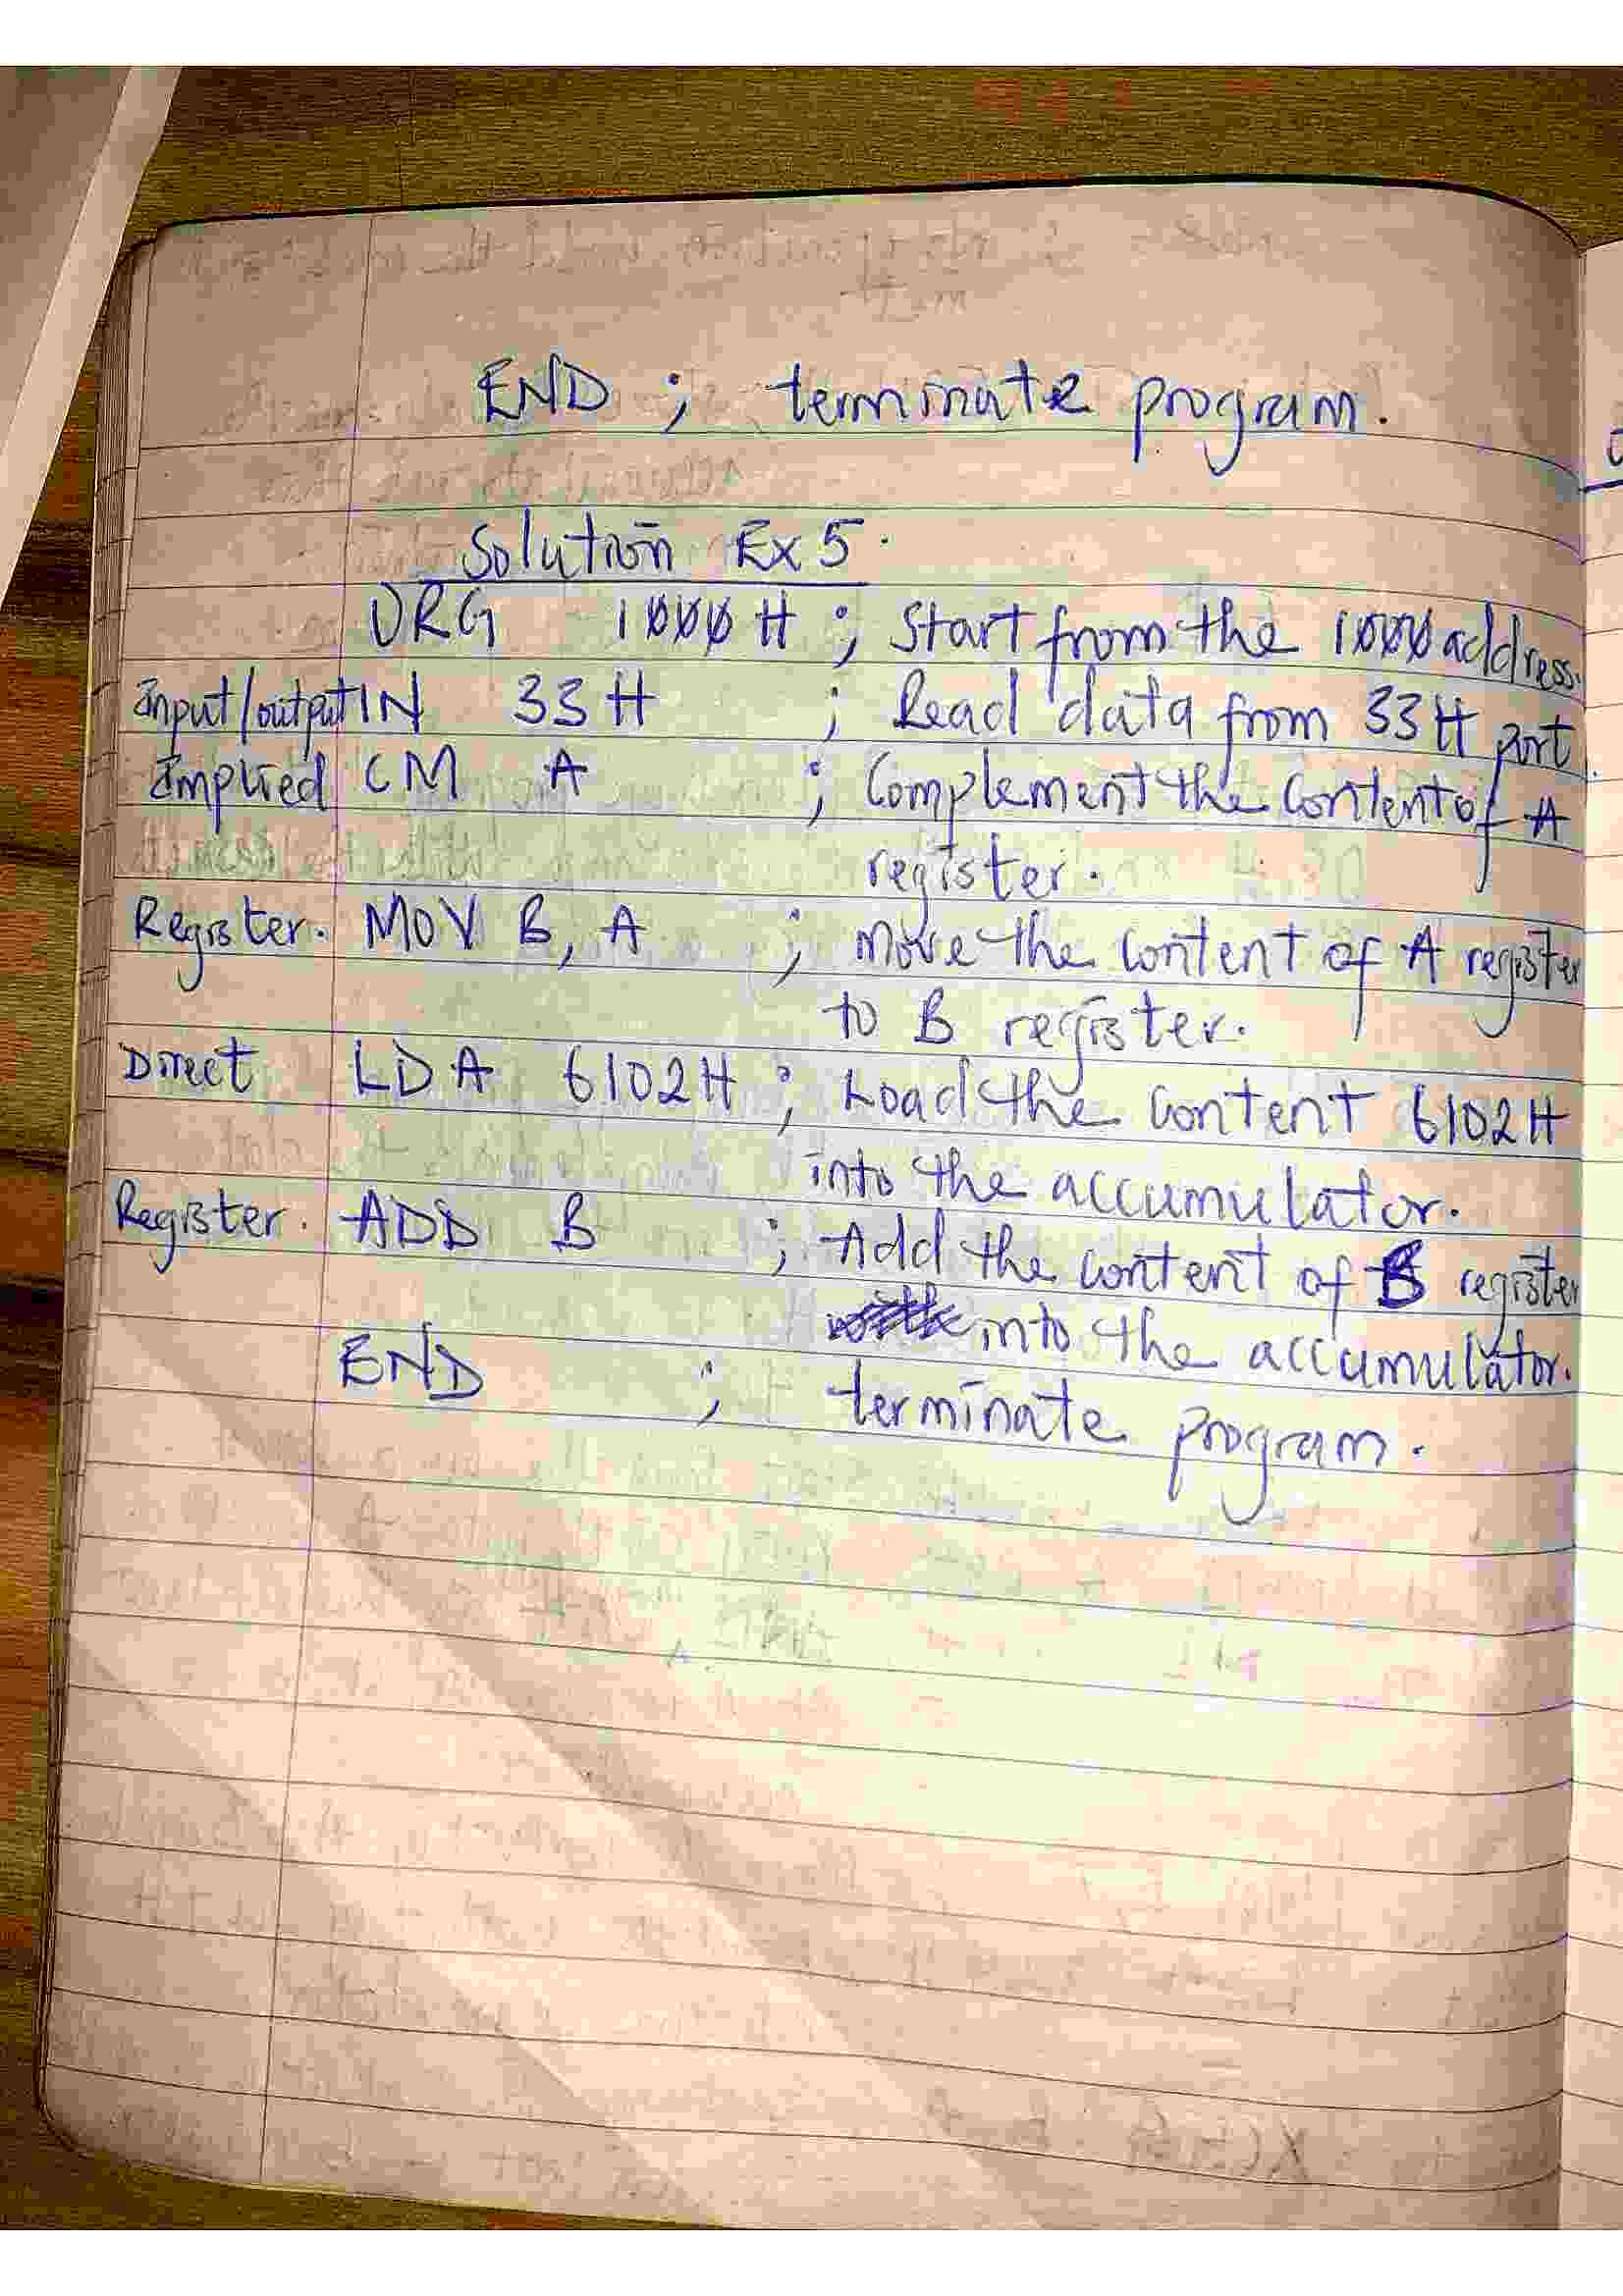 END ; terminate program.
Solution Ex 5.
ORG 1000H ; Start from the 1000 address.
Input/output IN 33H ; Read data from 33H port.
Implied CM A ; Complement the content of A
register.
Register. MOV B, A ; Move the content of A register
to B register.
Direct LDA 6102H ; Load the content 6102H
into the accumulator.
Register. ADD B ; Add the content of B register
into the accumulator.
END ; terminate program.